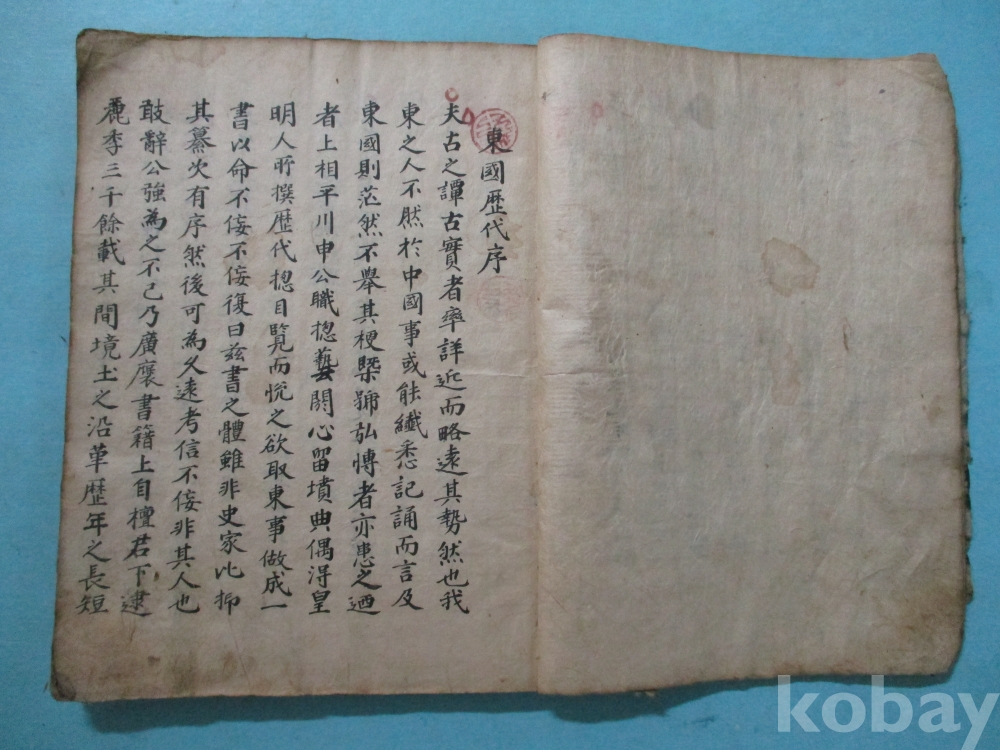 東國歷代序
夫古之譚古實者率詳近而略遠其勢然也我
東之人不然於中國事或能纖悉記誦而言及
東國則茫然不舉其梗槩號弘愽者亦患之廼
者上相平川申公職揔藝閣心留墳典偶得皇
明人所撰歷代揔目覽而悅之欲取東事倣成一
書以命不侫不侫復曰玆書之體雖非史家比抑
其纂次有序然後可為久遠考信不侫非其人也
敢辭公強為之不已乃廣裒書籍上自檀君下逮
麗季三千餘載其間境土之沿革歷年之長短
kobay